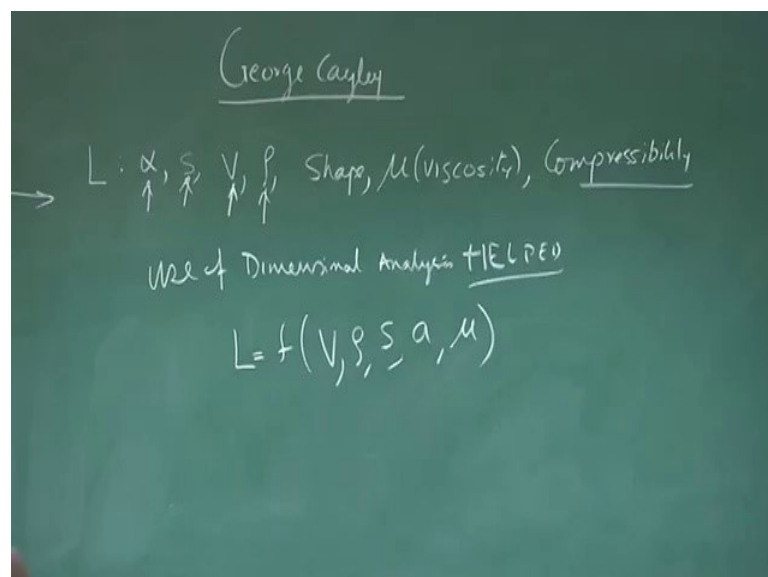 George Cayley
L: α, S, V, ρ, Shape, μ(viscosity), Compressibility
Use of Dimensional Analysis HELPED
L = f(V, ρ, S, a, μ)